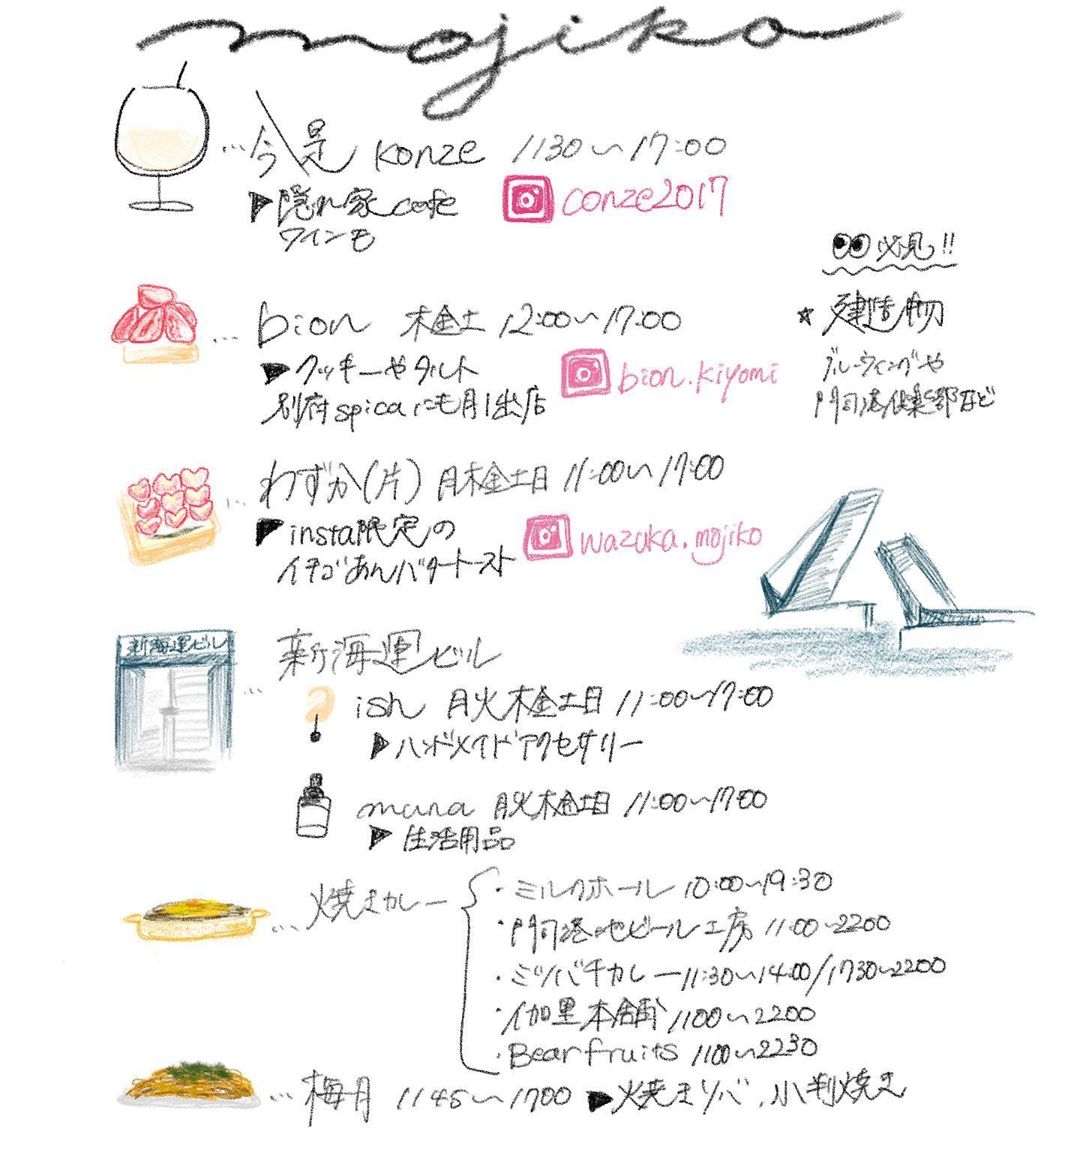 mojiko
今是 konze 1130〜17:00
▶隠れ家cafe
ワインも
conze2017
必見!!
★建造物
ブルーウィングや
門司港倶楽部など
bion 木金土 12:00〜17:00
▶クッキーやタルト
別府spicaにも月1出店
bion.kiyomi
わずか(片) 月木金土日 11:00〜17:00
▶insta限定の
イチゴあんバタートースト
wazuka.mojiko
新海運ビル
新海運ビル
ish 月火木金土日 11:00〜17:00
▶ハンドメイドアクセサリー
muna 月火木金土日 11:00〜17:00
▶生活用品
焼きカレー
・ミルクホール 10:00〜19:30
・門司港地ビール工房 11:00〜2200
・ミツバチカレー 11:30〜14:00/1730〜2200
・伽哩本舗 1100〜2200
・Bear fruits 1100〜2230
梅月 1145〜1700 ▶焼きソバ、小判焼き